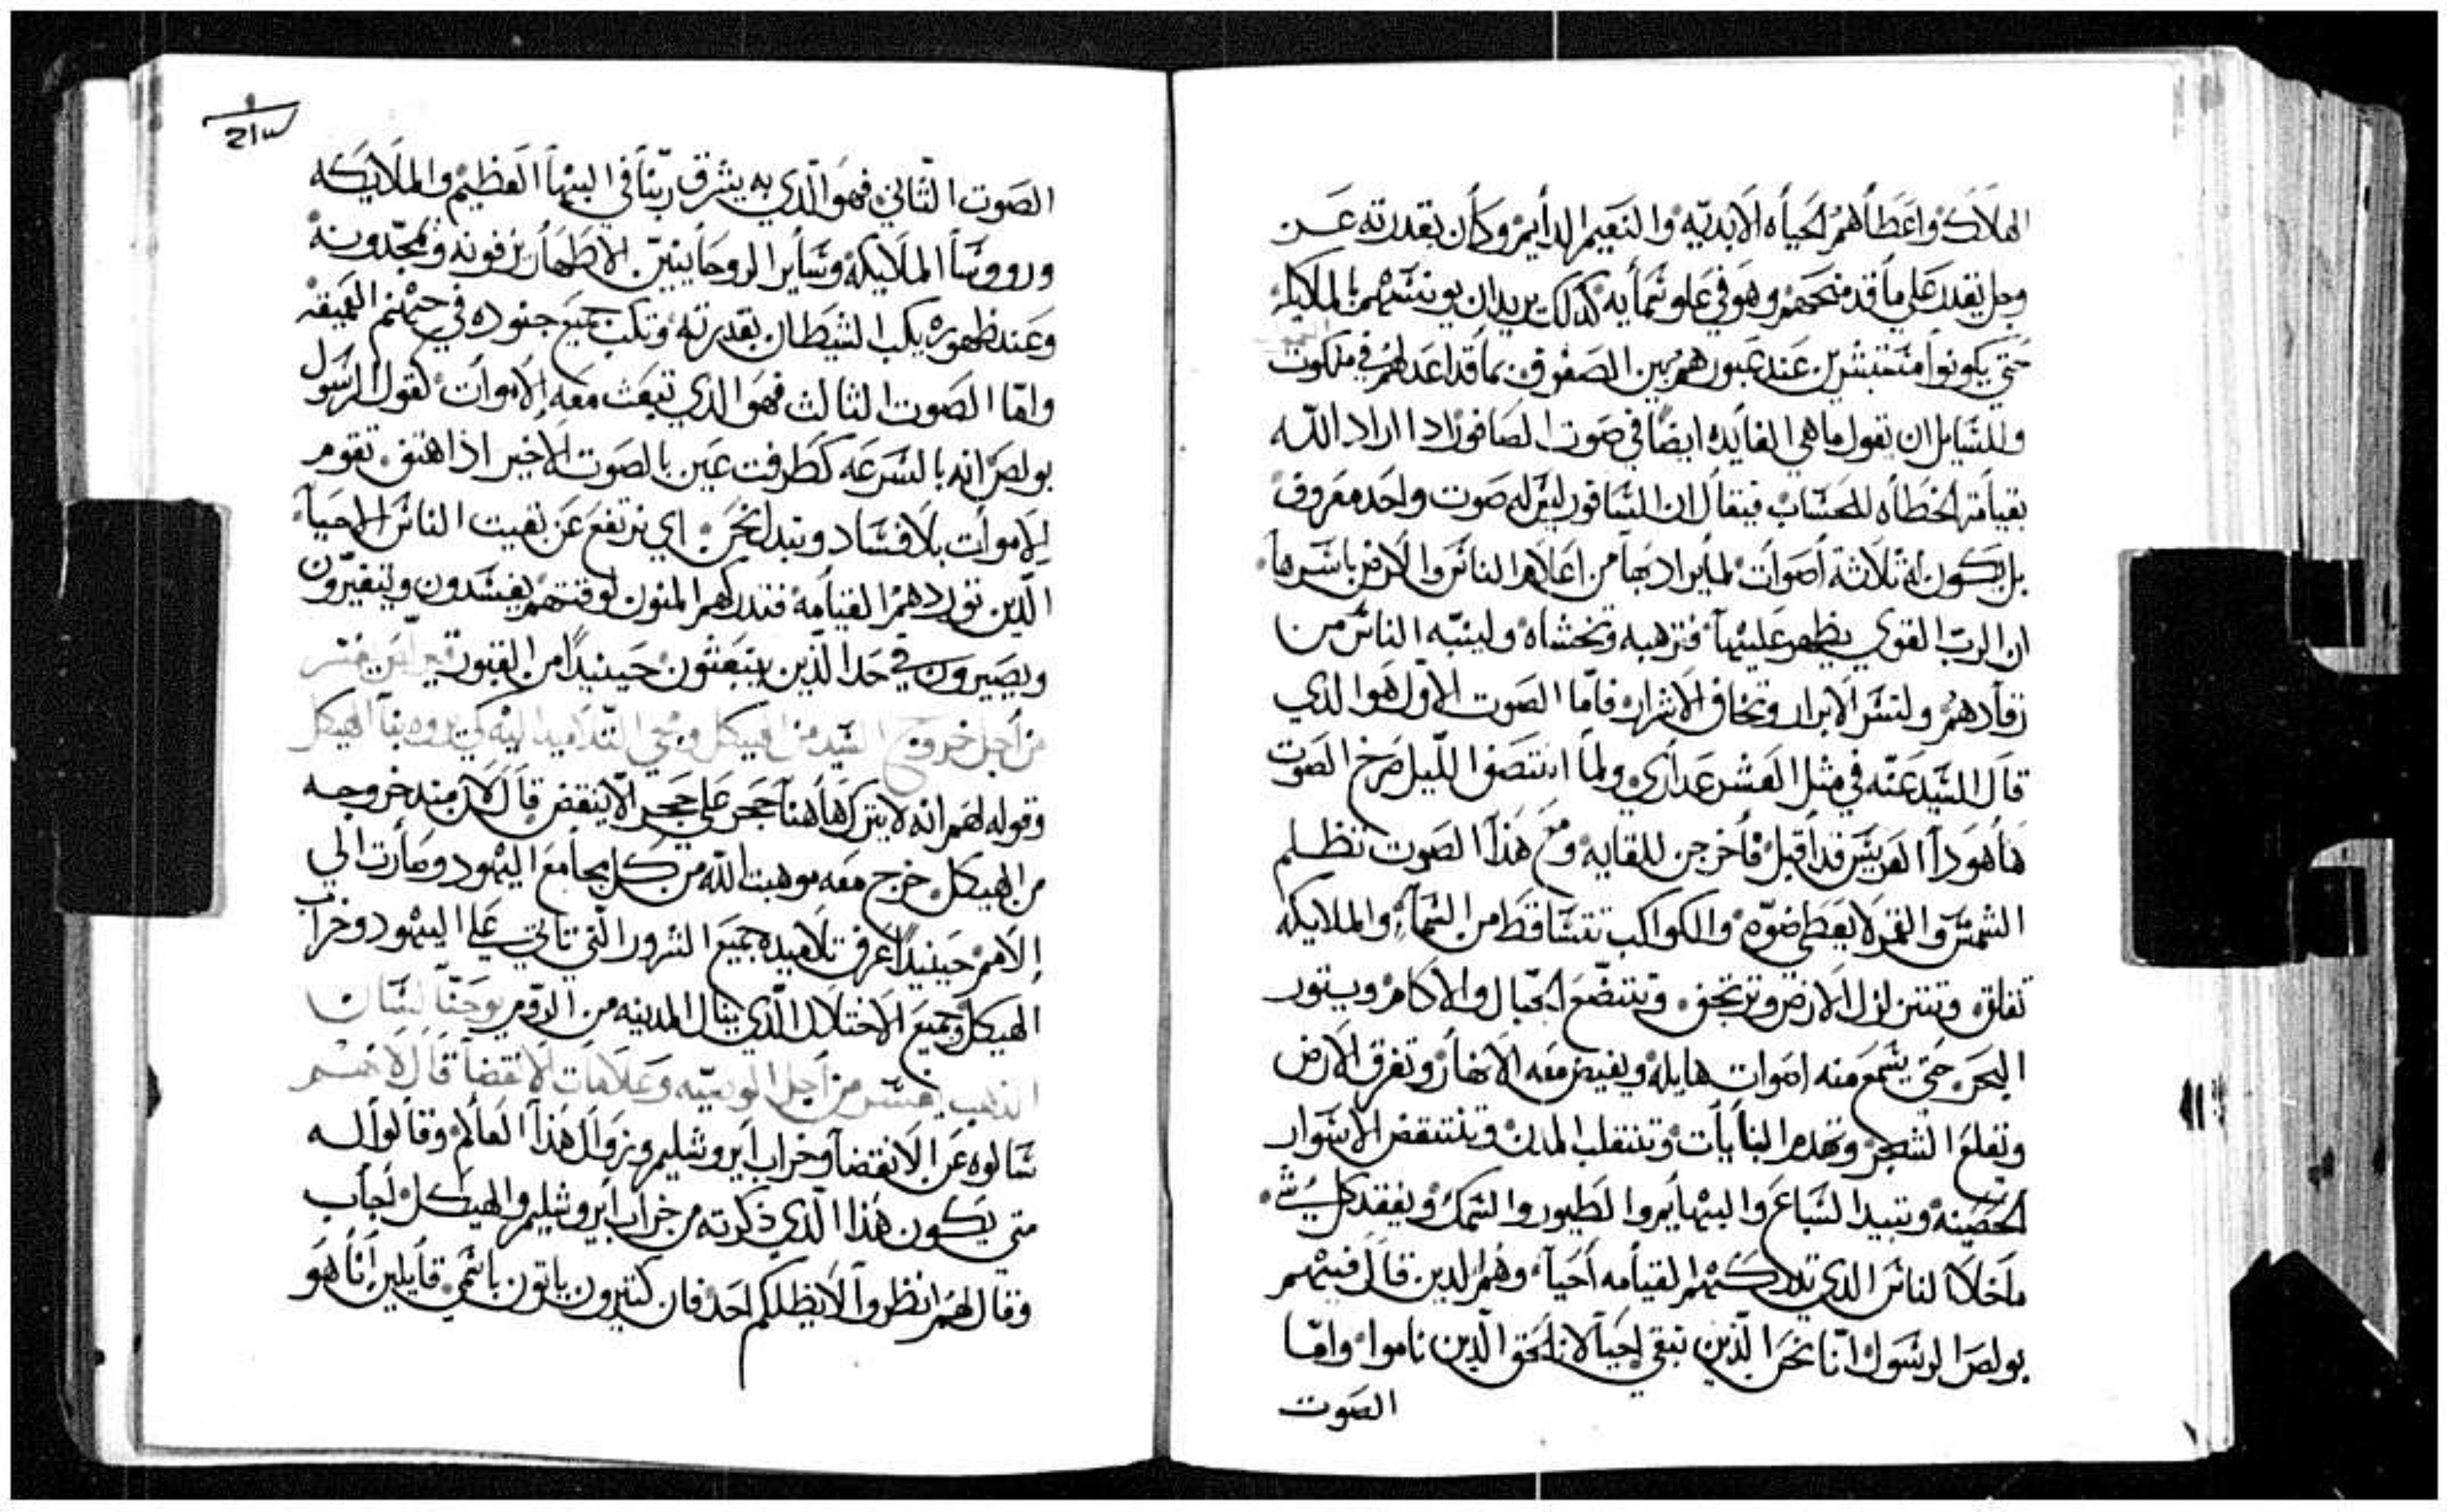 الهلاك واعطاهم الحياه الابديه والنعيم الدايم وكان بقدرته عن
وجل يقدر على ما قد منحهم وهو في علو سمايه كذلك يريد ان يونسهم بالملايكه
حتى يكونوا مستبشرين عند عبورهم بين الصفوف بما قد اعد لهم في ملكوت
وللسايل ان يقول ما هي الفايده ايضا في صوت الصافور اذا اراد الله
بقيامة الخطاه للحساب فيقال ان الساقور ليس له صوت واحد معروف
بل يكون له ثلاثة اصوات لما يراد بها من اعلام الناس والارض باسرها
ان الرب القوي يظهر عليها فترهبه وتخشاه ولينبه الناس من
رقادهم ولتسر الابرار وتخاف الاشرار فاما الصوت الاول هو الذي
قال السيد عنه في مثل العشر عداري ولما انتصف الليل صرخ الصوت
ها هوذا العريس قد اقبل فاخرجن للقايه ومع هذا الصوت تظلم
الشمس والقمر لا يعطي ضوه والكواكب تتساقط من السماء والملايكه
تقلق وتتزلزل الارض وترتجف وتتضع الجبال والاكام ويثور
البحر حتى يسمع منه اصوات هايله ويفيض معه الانهار وتغرق الارض
وتقلع الشجر وتهدم البنايات وتنقلب المدن وتنتقض الاسوار
الحصينه وتبيد السباع والبهايم والطيور والسمك ويفقد كل شي
ما خلا الناس الذي تدركهم القيامه احيا وهم الدين قال فيهم
بولص الرسول انا نحن الذين نبقى احيا لا نلحق الذين ناموا واما
الصوت
الصوت الثاني فهو الذي به يشرق ربنا في البها العظيم والملايكه
ورووسا الملايكه وساير الروحانيين الاطهار يزفونه ويمجدونه
وعند ظهوره يكب الشيطان بقدرته وتكب جميع جنوده في جهنم العميقه
واما الصوت الثالث فهو الذي تنبعث معه الاموات كقول الرسول
بولص انه بالسرعه كطرفت عين بالصوت الاخير اذا هتف تقوم
الاموات بلا فساد ونبدل نحن اي نرتفع عن بقيت الناس الاحيا
الذين توردهم القيامه فتدركهم المنون لوقتهم يفسدون ويتغيرون
ويصيرون في حد الذين ينبعثون حينيد من القبور
من اجل خروج السيد من الهيكل ومجي التلاميد اليه كي يروه بنا الهيكل
وقوله لهم انه لا يترك هاهنا حجر على حجر الا ينقض قال لان مند خروجه
من الهيكل خرج معه موهبت الله من كل مجامع اليهود وصارت الي
الامم حينيد اعرف تلاميده جميع الشرور التي تاتي على اليهود وخراب
الهيكل وجميع الاختلال الذي ينال المدينه من الروم يوحنا لسان
الذهب يفسر من اجل الوصيه وعلامات الانقضا قال لانهم
سالوه عن الانقضا وخراب ايروشليم وزوال هذا العالم وقالوا له
متى يكون هذا الذي ذكرته من خراب ايروشليم والهيكل اجاب
وقال لهم انظروا لا يظلكم احد فان كثيرون ياتون باسمي قايلين انا هو